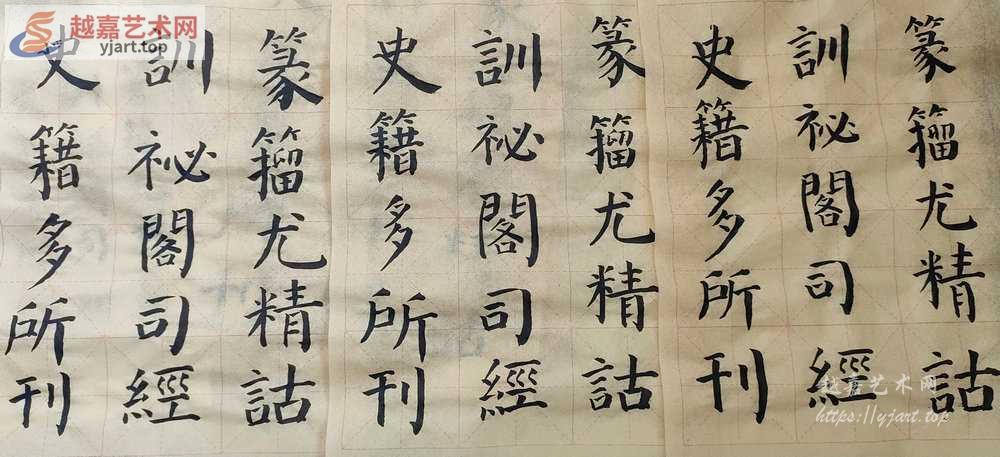 越嘉艺术网
yjart.top
篆籀尤精詁
訓祕閣司經
史籍多所刊
篆籀尤精詁
訓祕閣司經
史籍多所刊
篆籀尤精詁
訓祕閣司經
史籍多所刊
越嘉艺术网
https://yjart.top